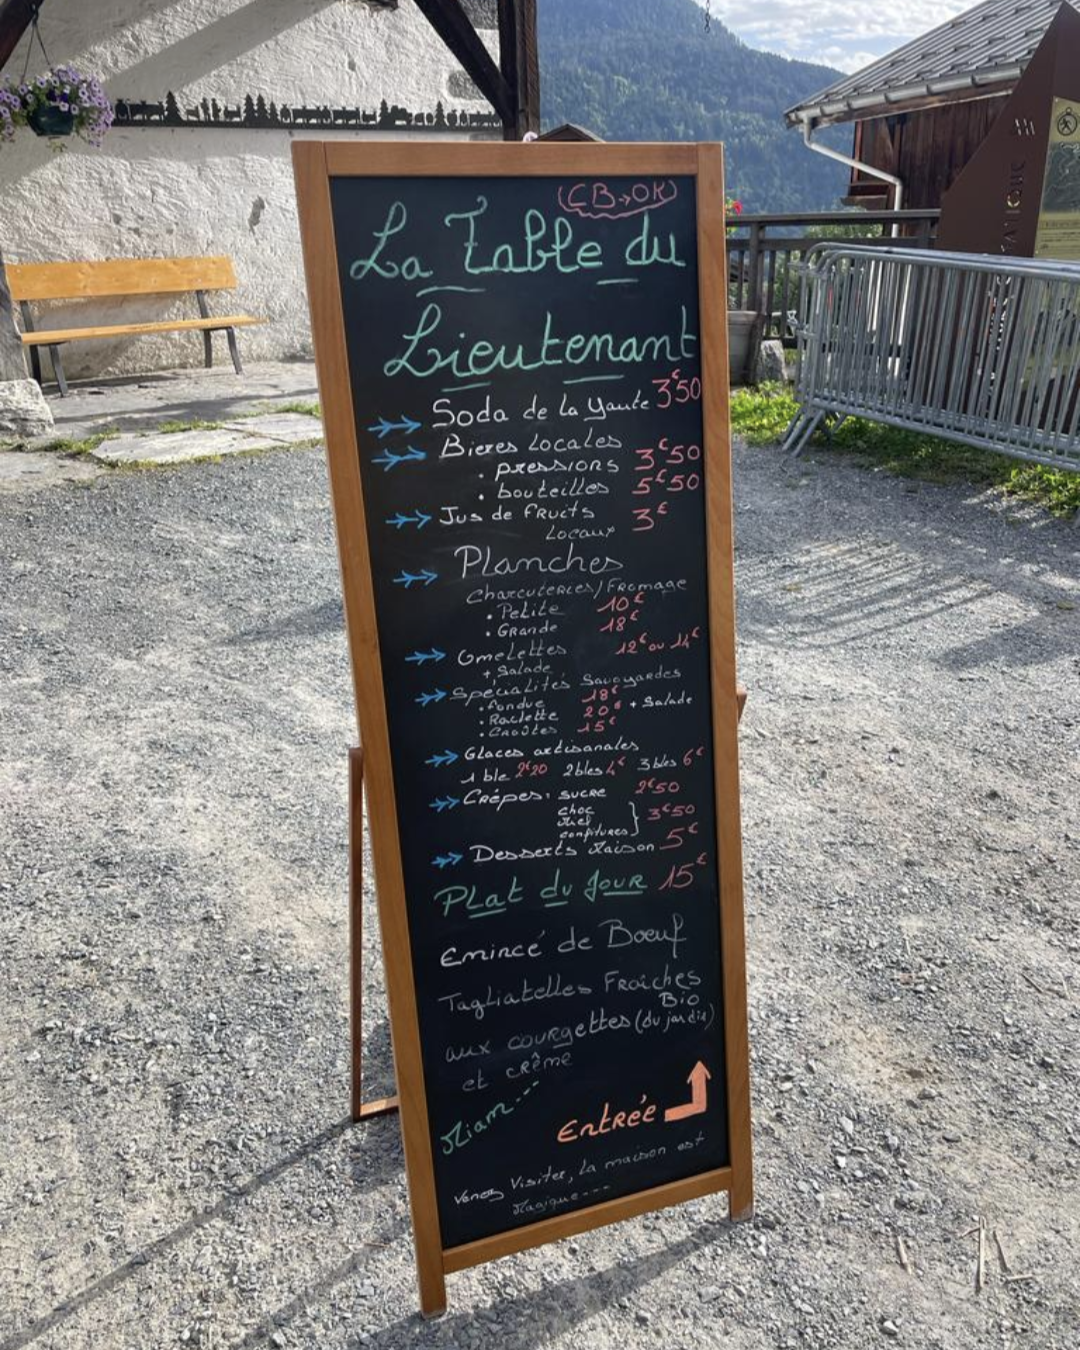 (CB→OK)
La Table du
Lieutenant
Soda de la Yaute 3€50
Bieres Locales
. pressions 3€50
. bouteilles 5€50
Jus de fruits 3€
Locaux
Planches
Charcuteries/Fromage
. Petite 10€
. Grande 18€
Omelettes 12€ ou 14€
+ Salade
Spécialités Savoyardes
. fondue 18€
. Raclette 20€ + Salade
. Croûtes 15€
Glaces artisanales
1 ble 2€20 2bles 4€ 3bles 6€
Crêpes: sucre 2€50
choc
Miel } 3€50
confitures
Desserts Maison 5€
Plat du Jour 15€
Emincé de Boeuf
Tagliatelles Fraîches
Bio
aux courgettes (du jardin)
et crême
Miam...
Entrée
Venez Visiter, la maison est
Magique...